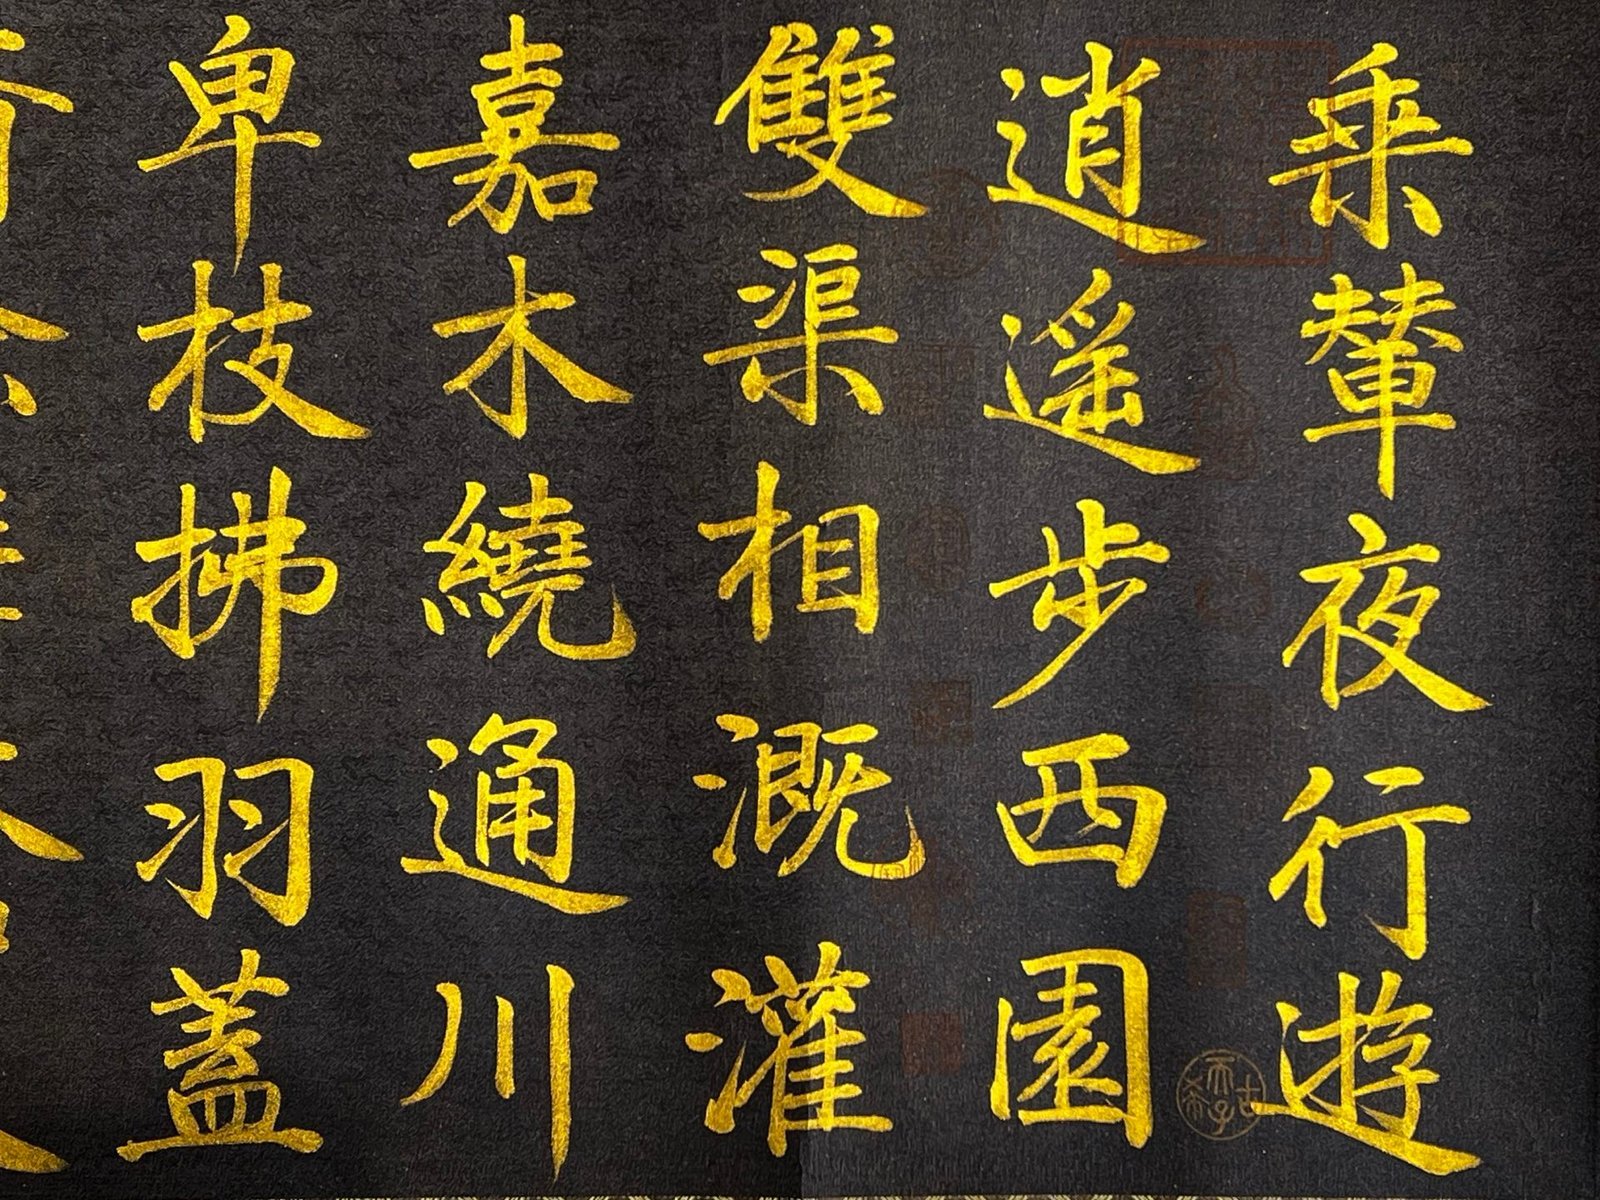 乘輦夜行遊
逍遙步西園
雙渠相溉灌
嘉木繞通川
卑枝拂羽蓋